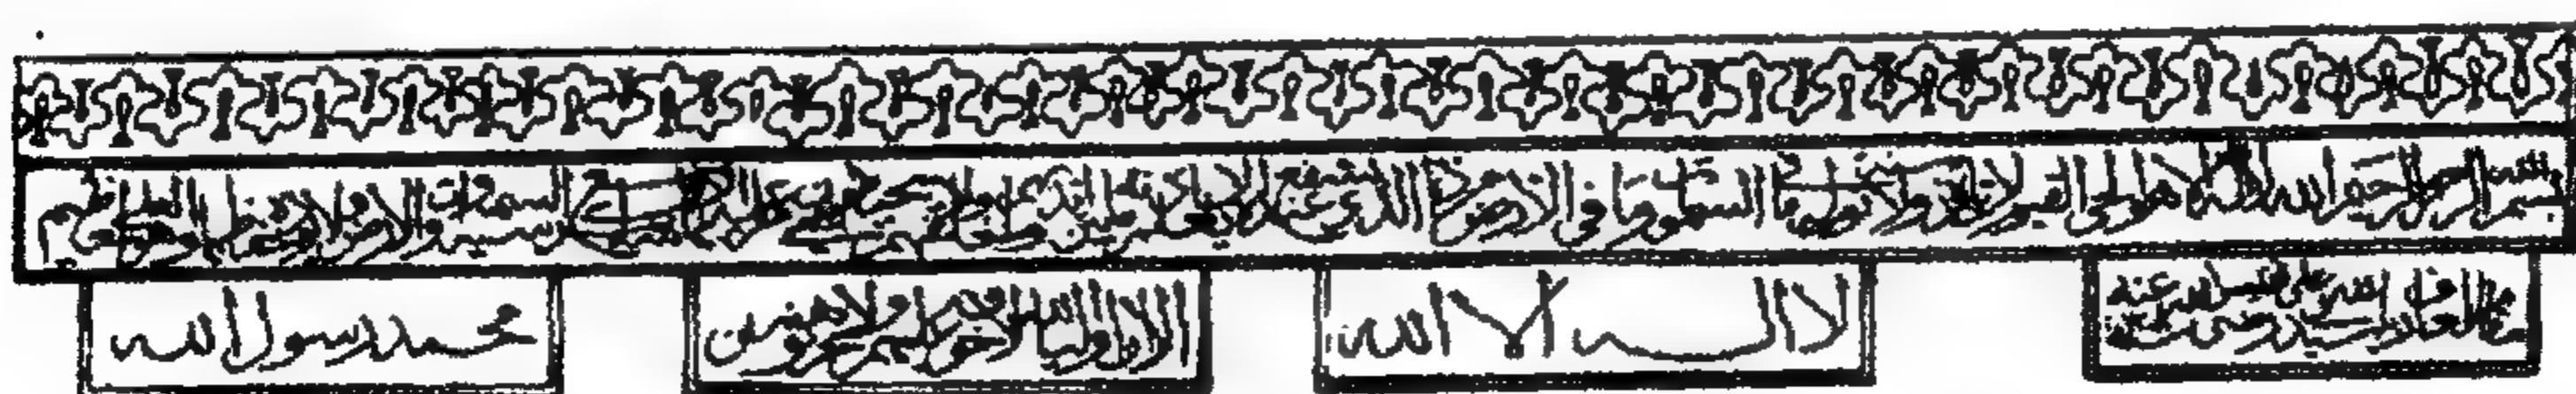 بسم الله الرحمن الرحيم الله لا اله الا هو الحى القيوم لا تأخذه سنة ولا نوم له ما فى السموات وما فى الارض من ذا الذى يشفع عنده الا باذنه يعلم ما بين ايديهم وما خلفهم ولا يحيطون بشىء من علمه الا بما شاء وسع كرسيه السموات والارض ولا يؤده حفظهما وهو العلى العظيم
عنه
لا اله الا الله
الا ان اولياء الله لا خوف عليهم ولا هم يحزنون
محمد رسول الله